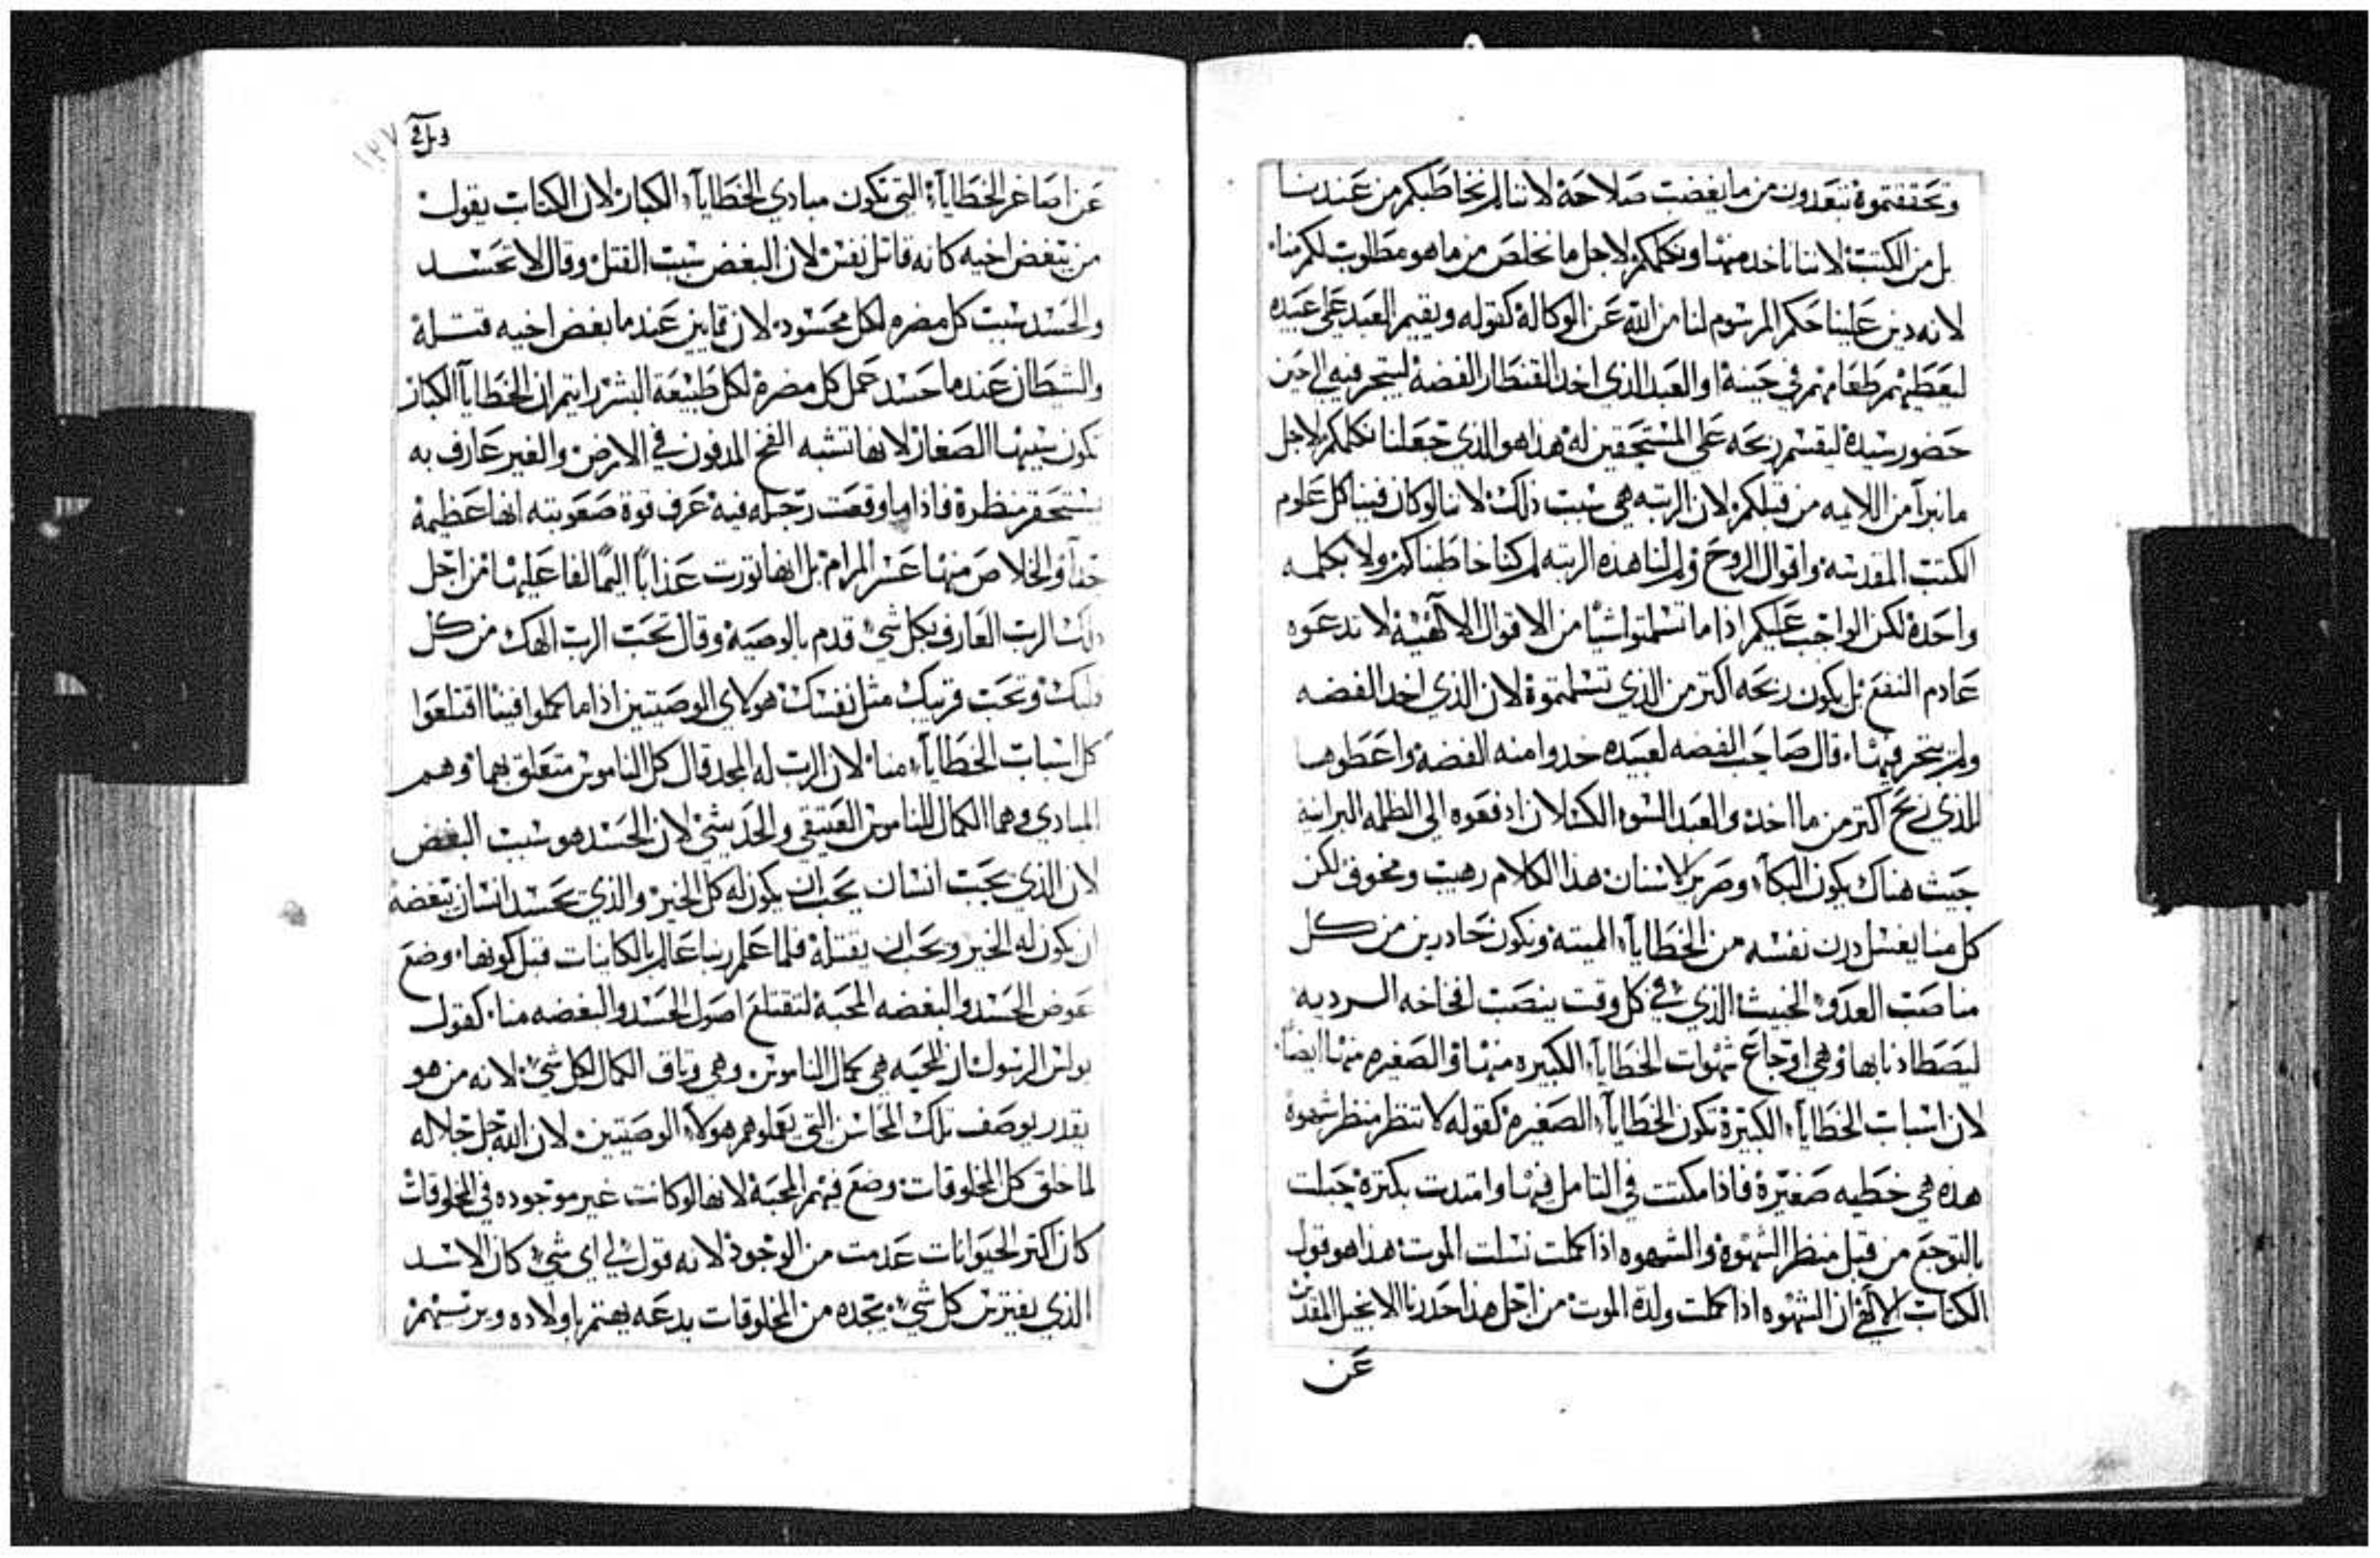 وتحققتموه تبعدون من ما يغضب صلاحه لاننا لم نخاطبكم من عندنا
بل من الكتب لاننا ناخد منها ونكلمكم لاجل ما نخلص من ما هو مطلوب لكم منا
لانه دين علينا حكم المرسوم لنا من الله عن الوكالة كقوله ويقيم العبد على عبيده
ليعطيهم طعامهم في حينه او العبد الذي اخد القنطار الفضة ليتجر فيه الى حين
حضور سيده ليقسم ربحه على المستحقين له هذا هو الذي جعلنا نكلمكم لاجل
ما نبرآ من اللايمه من قبلكم لان الرتبه هي سبب ذلك لاننا لو كان فينا كل علوم
الكتب المقدسه واقوال الروح ولم لنا هذه الرتبه لم كنا خاطبناكم ولا بكلمه
واحدة لكن الواجب عليكم اذا ما تسلمتوا شيا من الاقوال الالهية لا تدعوه
عادم النفع بل يكون ربحه اكتر من الذي تسلمتموة لان الذي اخد الفضه
ولم يتجر فيها قال صاحب الفضه لعبيده خدوا منه الفضة واعطوها
للذي ربح اكتر من ما اخد والعبد السو الكسلان ادفعوه الى الظلمه البرانيه
حيث هناك يكون البكآء وصرير الاسنان هذا الكلام رهيب ومخوف لكن
كل منا يغسل درن نفسه من الخطايآء الميته ونكون حادرين من كل
مناصب العدو الخبيث الذي في كل وقت ينصب لفخاخه الرديه
ليصطادنا بها وهي اوجاع شهوات الخطايآء الكبيره منها والصغيره منها ايضا
لان اسباب الخطايآء الكبيرة تكون الخطايآء الصغيره كقوله لا تنظر منظر شهوة
هذه هي خطيه صغيرة فاذا مكتت في التامل فيها وامتدت بكترة حبلت
بالتوجع من قبل منظر الشهوة والشهوه اذا كملت نسلت الموت هذا هو قول
الكتاب الالهي ان الشهوه اذا كملت ولدة الموت من اجل هذا حددنا الانجيل المقدس
عن
١٢٧
عن اصاغر الخطايآء التي تكون مبادي الخطايآء الكبار لان الكتاب يقول
من يبغض اخيه كانه قاتل نفس لان البغض سبب القتل وقال لا تحسد
والحسد سبب كل مضره لكل محسود لان قايين عند ما بغض اخيه قتله
والشيطان عند ما حسد عمل كل مضرة لكل طبيعة البشر رايتم ان الخطايآ الكبار
تكون سببها الصغار لانها تشبه الفخ المدفون في الارض والغير عارف به
يستحقر منظرة فاذا ما وقعت رجله فيه عرف قوة صعوبته انها عظيمة
جدآ والخلاص منها عسر المرام بل انها تورت عذاباً اليماً لفاعليها من اجل
ذلك الرب العارف بكل شي قدم بالوصية وقال تحب الرب الهك من كل
قلبك وتحب قريبك مثل نفسك هولاي الوصيتين اذا ما كملوا فينا اقتلعوا
كل اسباب الخطايآء منا لان الرب له المجد قال كل الناموس متعلق بهما وهم
المبادي وهما الكمال للناموس العتيقي والحديثي لان الحسد هو سبب البغض
لان الذي يحب انسان يحب ان يكون له كل الخير والذي يحسد انسان يبغضه
ان يكون له الخير ويحب ان يقتله فلما علم ربنا عالم بالكاينات قبل كونها وضع
عوض الحسد والبغضه المحبة لتقتلع اصول الحسد والبغضه منا كقول
بولس الرسول ان المحبه هي كمال الناموس وهي وتاق الكمال لكل شي لانه من هو
يقدر يوصف تلك المحاسن التي يعلوهم هولاء الوصيتين لان الله جل جلاله
لما خلق كل المخلوقات وضع فيهم المحبة لانها لو كانت غير موجوده في المخلوقات
كان اكتر الحيوانات عدمت من الوجود لانه قول لي اي شي كان الاسد
الذي يفترس كل شي يجده من المخلوقات يدعه يهتم باولاده ويرتسهم